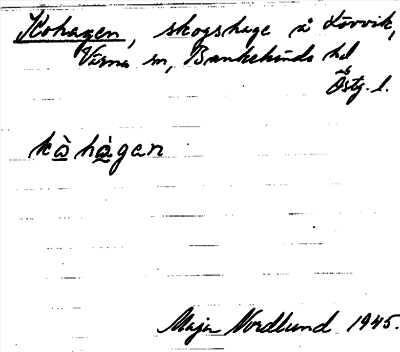 Kohagen, skogshage å Lövvik,
Värna sn, Bankekinds hd
Östg. l.
kòhàgan
Maja Nordlund 1945.